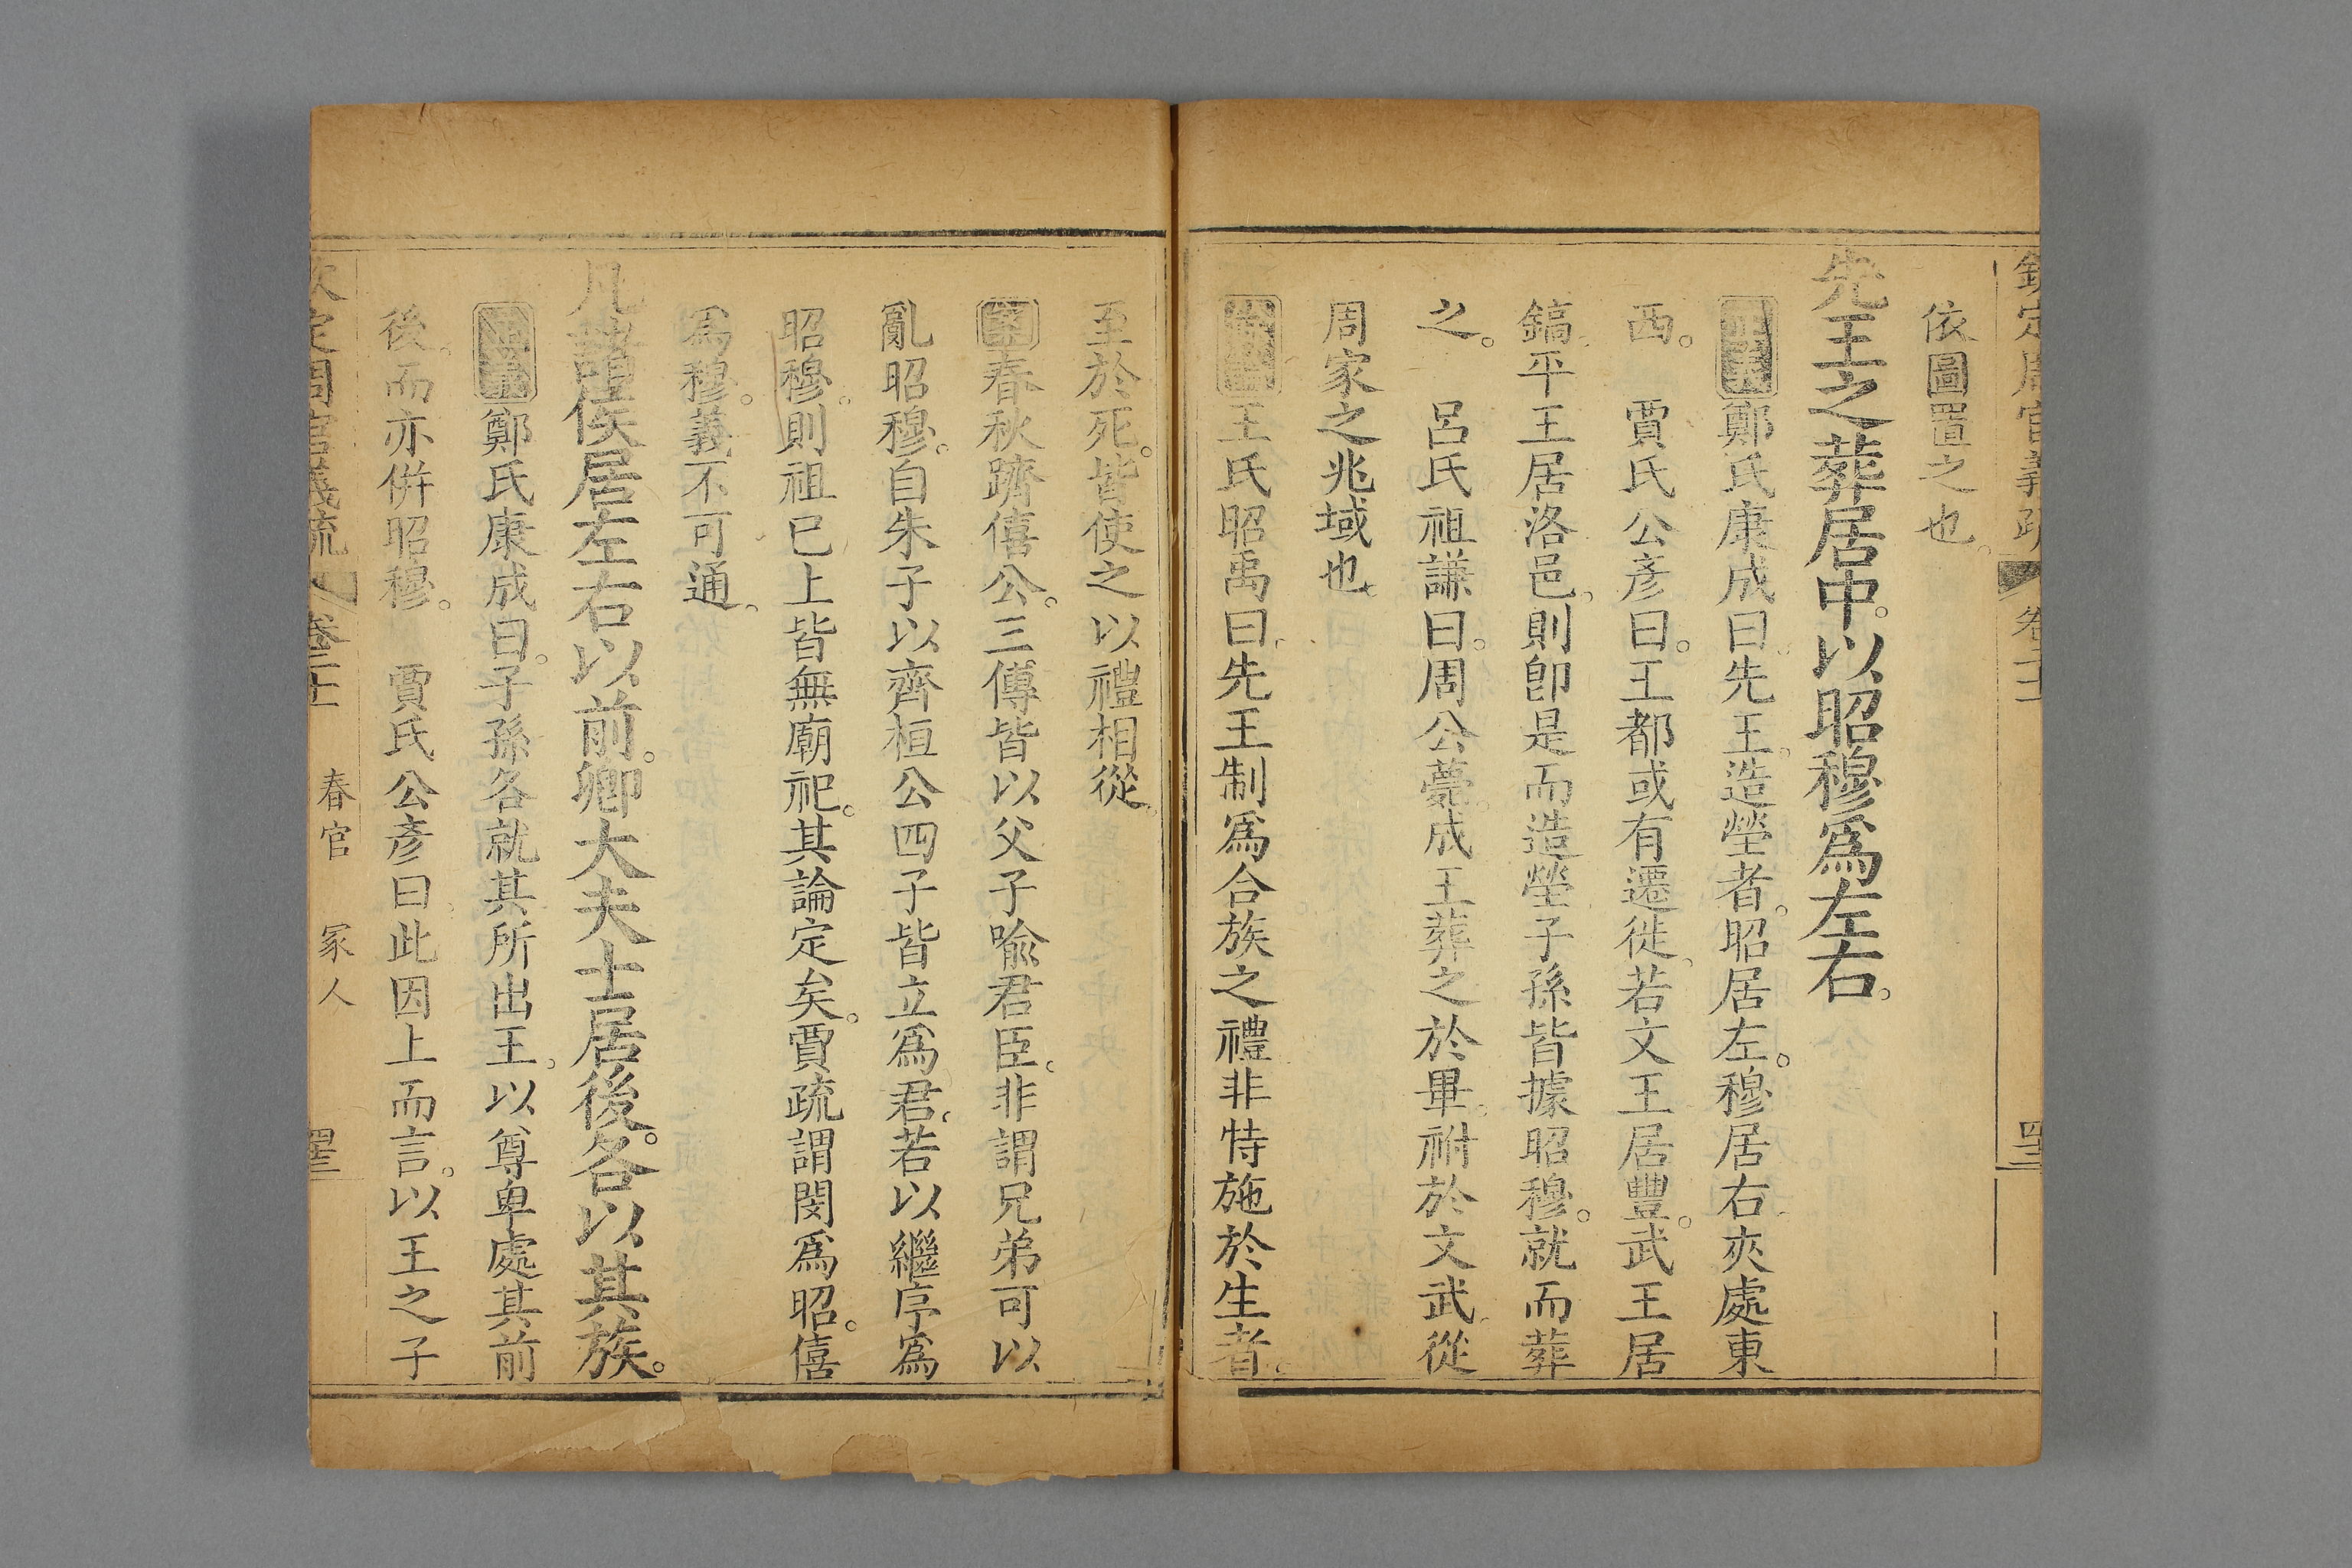 欽定周官義疏 卷二十一 四三
依圖置之也。
先王之葬居中。以昭穆爲左右。
正義鄭氏康成曰。先王。造塋者。昭居左。穆居右。夾處東
西。 賈氏公彥曰。王都或有遷徙。若文王居豐。武王居
鎬。平王居洛邑。則卽是而造塋。子孫皆據昭穆。就而葬
之。 呂氏祖謙曰。周公薨。成王葬之於畢。祔於文武。從
周家之兆域也。
王氏昭禹曰。先王制爲合族之禮非特施於生者。
至於死。皆使之以禮相從。
案春秋躋僖公。三傳皆以父子喻君臣。非謂兄弟可以
亂昭穆。自朱子以齊桓公四子皆立爲君。若以繼序爲
昭穆。則祖已上皆無廟祀。其論定矣。賈疏謂閔爲昭。僖
爲穆。義不可通。
凡諸侯居左右以前。卿大夫士居後。各以其族。
正義鄭氏康成曰。子孫各就其所出王。以尊卑處其前
後。而亦併昭穆。 賈氏公彥曰。此因上而言。以王之子
欽定周官義疏 卷二十一 春官 冢人 四三